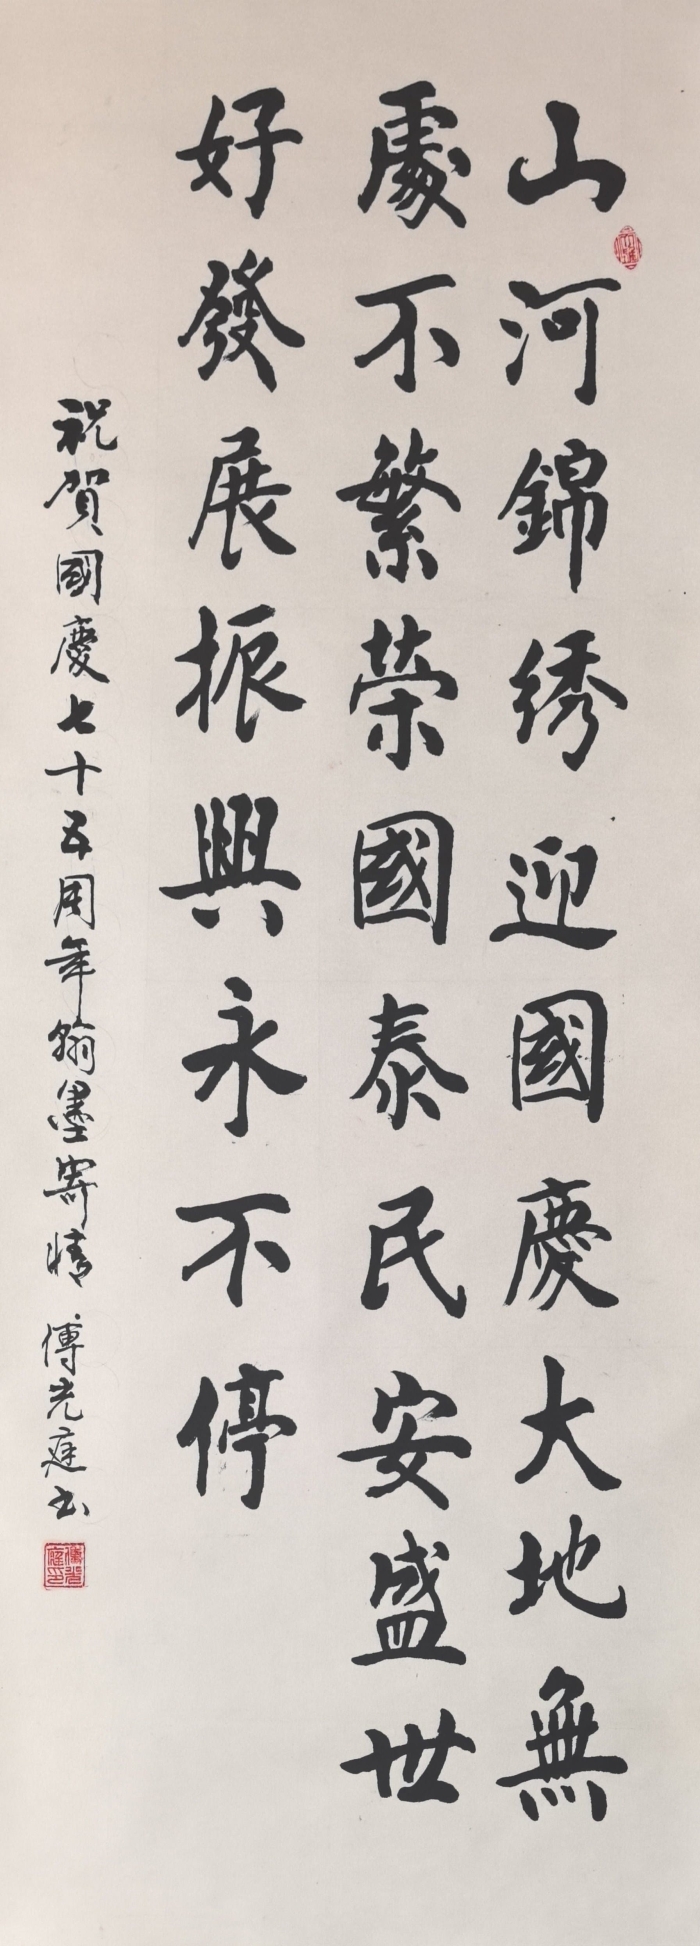 山河錦绣迎國慶大地無
處不繁荣國泰民安盛世
好發展振興永不停
祝賀國慶七十五周年翰墨寄情 傅光庭书